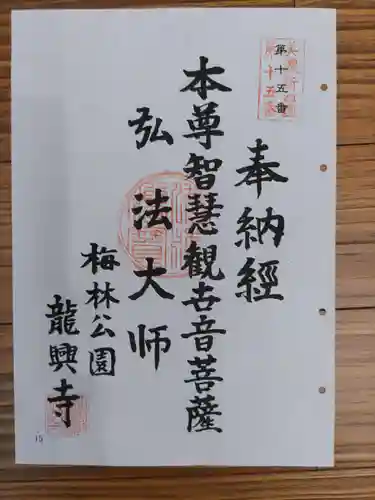 第十五番
奉納經
本尊智慧觀世音菩薩
弘法大师
梅林公園
龍興寺
15